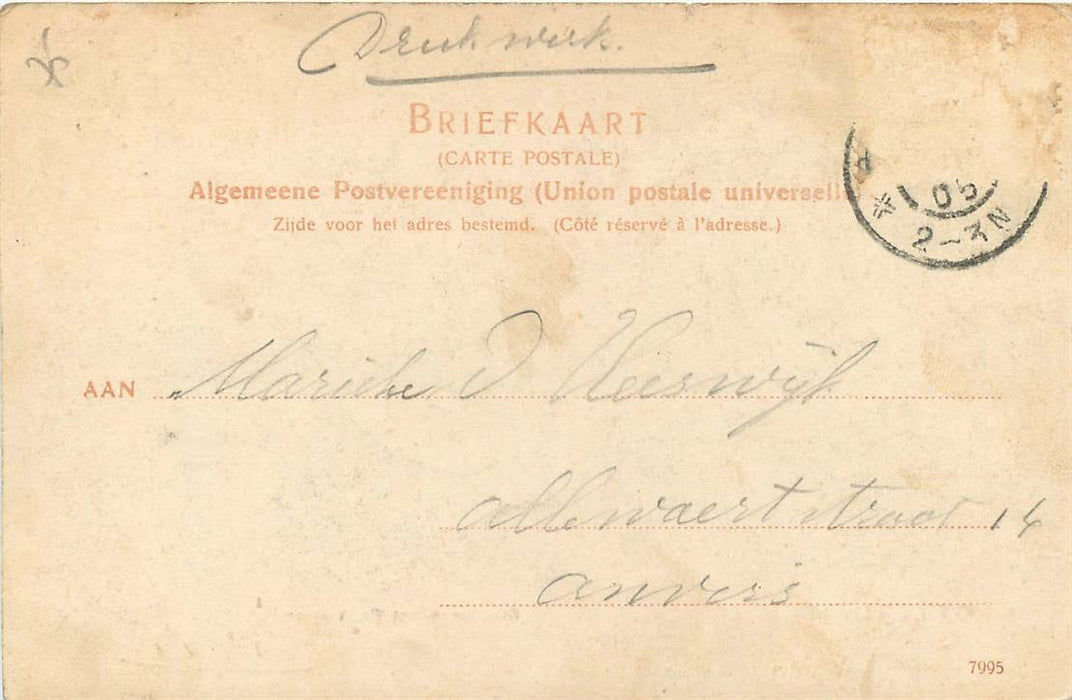 Drukwerk.
BRIEFKAART
(CARTE POSTALE)
Algemeene Postvereeniging (Union postale universell
Zijde voor het adres bestemd. (Côté réservé à l'adresse.)
05
2-3N
AAN Marieke V Heeswijk
straat 14
Anvers
7995